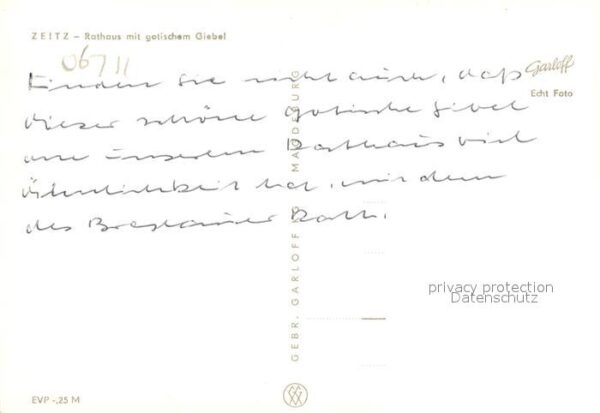 ZEITZ – Rathaus mit gotischem Giebel
06711
Finden Sie nicht auch, daß
dieser schöne gotische Gibel
an unserem Rathaus viel
Ähnlichkeit hat, mit dem
des Breslauer Rath.
Garloff
Echt Foto
GEBR. GARLOFF KG MAGDEBURG
privacy protection
Datenschutz
EVP -,25 M